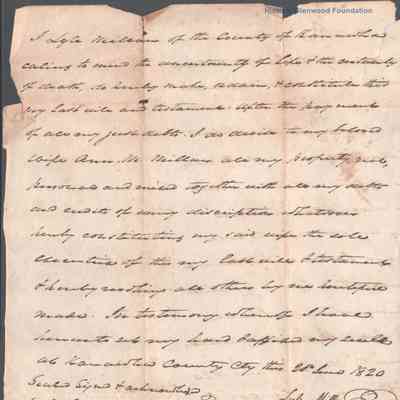 Historic Glenwood Foundation
I Lyle Millan of the County of Kanawha
caling to mind the uncertainty of life & the certainty
of death, do hereby make, ordain, & constitute this
my last will and testament. After the payment
of all my just debts. I do devise to my beloved
wife Ann M. Millan all my property real,
personal and mixed together with all my debts
and credits of every discription whatsoever
hereby constituting my said wife the sole
executrix of this my last will & testament
& hereby revoking all others by me heretofore
made. In testimony whereof I have
hereunto set my hand & affixed my seal
at Kanawha County this 28 June 1820
Sealed Signed & acknowledged